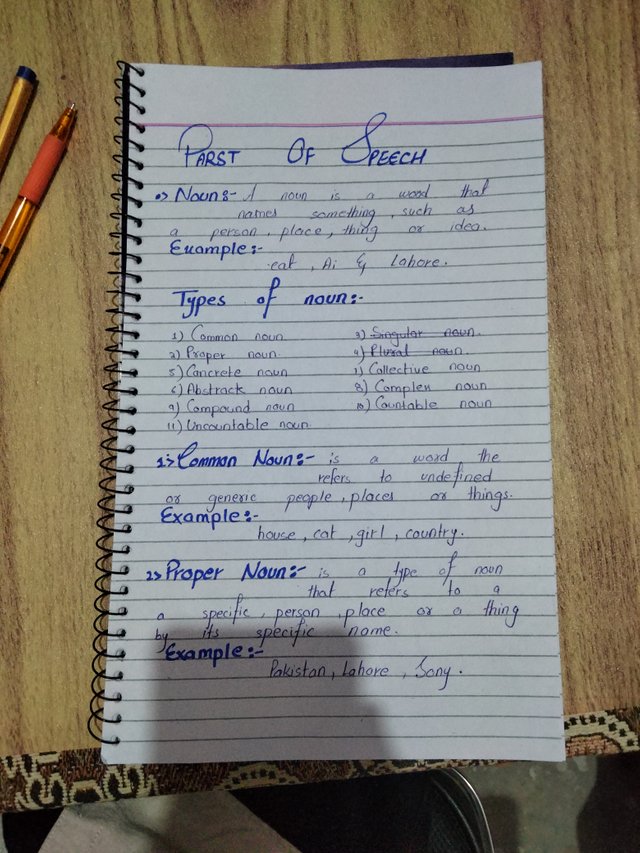 PARST OF SPEECH
•> Noun:- A noun is a word that
names something, such as
a person, place, thing or idea.
Example:-
cat, Ai & Lahore.
Types of noun:-
1) Common noun 3) Singular noun.
2) Proper noun 4) Plural noun.
5) Concrete noun 7) Collective noun
6) Abstrack noun 8) Complex noun
9) Compound noun 10) Countable noun
11) Uncountable noun
1:> Common Noun:- is a word the
refers to undefined
or generic people, places or things.
Example:-
house, cat, girl, country.
2:> Proper Noun:- is a type of noun
that refers to a
a specific, person, place or a thing
by its specific name.
Example:-
Pakistan, Lahore, Sony.